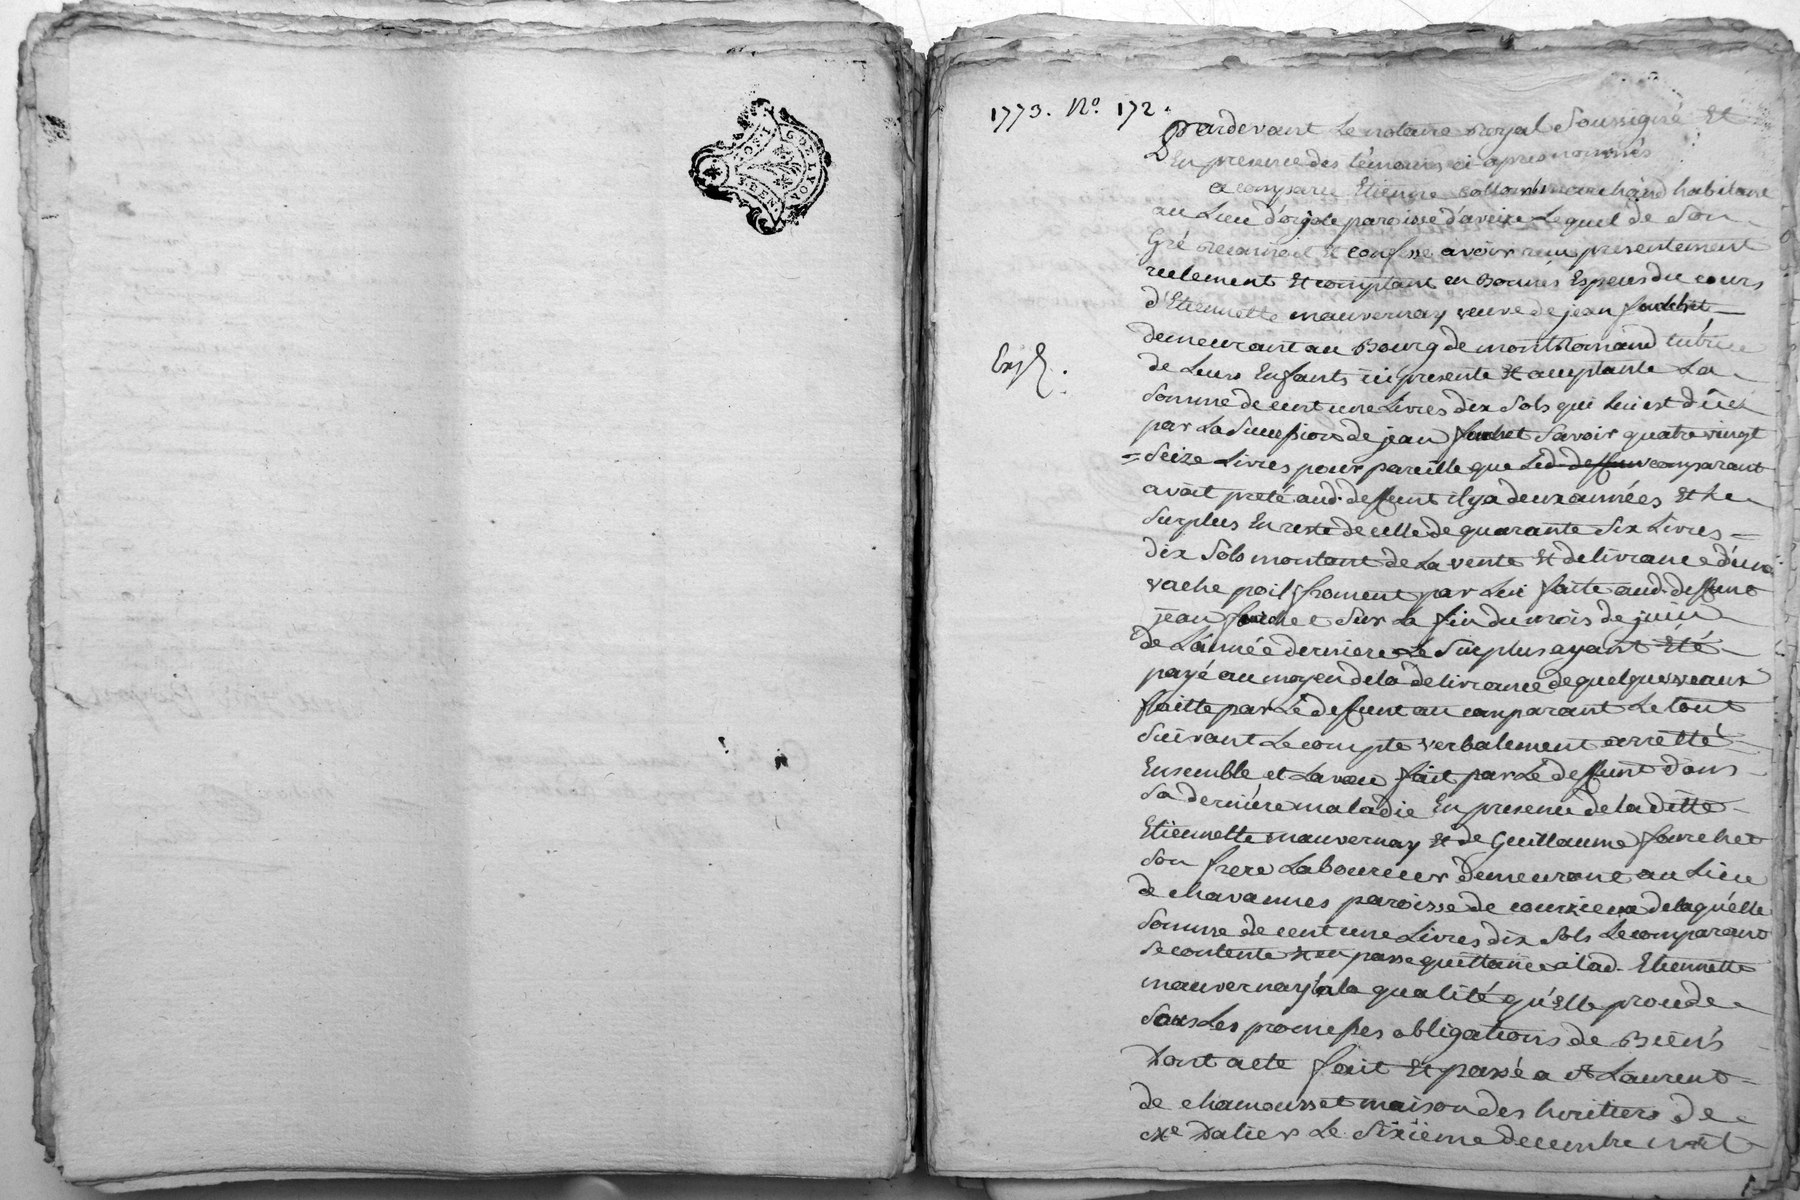 1773. No. 172.
Pardevant Le notaire royal Soussigné Et
En presence des témoins ci apres nommés
a comparu Etienne collomb marchand habitant
au Lieu d'orjole paroisse d'aveize Lequel de Son
Gré reconnoit Et confesse avoir reçu presentement
reelement Et comptant en Bonnes Especes du cours
d'Etiennette mauvernay veuve de jean fouchet
demeurant au Bourg de montRomand tutrice
Exp.
de Leurs Enfants ici presente Et acceptante La
Somme de cent une Livres dix Sols qui lui est dûe
par La Succession de jean fouchet Savoir quatre vingt
= Seize Livres pour pareille que Led. deffunt comparant
avoit preté aud. deffunt il y a deux années Et Le
Surplus En reste de celle de quarante Six Livres =
dix Sols montant de La vente Et delivrance d'une
vache poil froment par Lui faitte aud. deffunt
jean fouchet Sur La fin du mois de juin
de L'année derniere Le Surplus ayant Eté
payé au moyen de la delivrance de quelques veaux
faitte par Le deffunt au comparant Le tout
Suivant Le compte verbalement arretté
Ensemble et Laveu fait par Le deffunt dans
Sa derniere maladie En presence de la ditte
Etiennette mauvernay Et de Guillaume fouchet
Son frere Laboureur demeurant au Lieu
de chavannes paroisse de courzieux de laquelle
Somme de cent une Livres dix Sols Le comparant
Se contente Et en passe quittance à lad. Etiennette
mauvernay à la qualité qu'Elle procede
Sous Les promesses obligations de Biens
Dont acte fait Et passé a St Laurent
de chamousset maison des heritiers de
Me Dalier Le Sixieme decembre mil